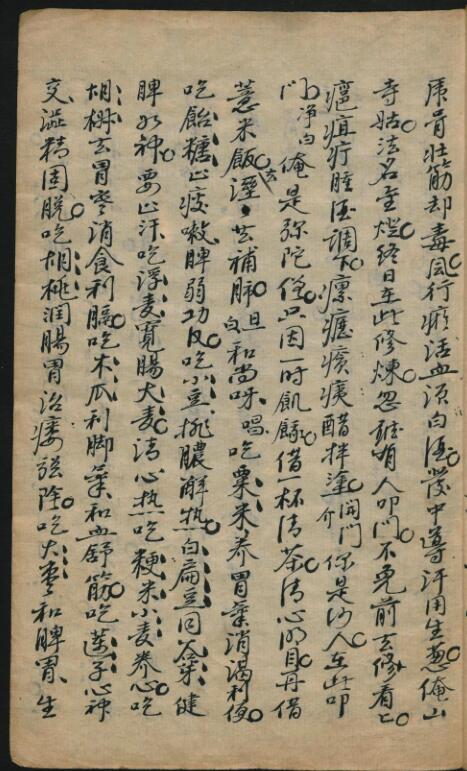 虎骨壮筋却毒風行瘀活血須白酒發中尊汗用生葱俺山
寺姑法名金燈終日在此修煉忽聽有人叩門不免前去修看上
瘟疽疔腫酒調下瘰癧癀痍醋拌塗開門介你是何人在此叩
門净白俺是弥陀僧只因一时飢餓借一杯清茶清心明目再借
薏米飯溼去補肺旦白和尚呀唱吃粟米养胃氣消渴利便
吃飴糖止痰嗽脾弱功收吃小豆排膿解热白扁豆同谷芽健
脾外神要止汗吃浮麦寬腸大麦清心热吃粳米小麦养心吃
胡椒去胃寒消食利膈吃木瓜利脚氣和血舒筋吃蓮子心神
交澁精固脱吃胡桃潤腸胃治痿強陰吃大枣和脾胃生